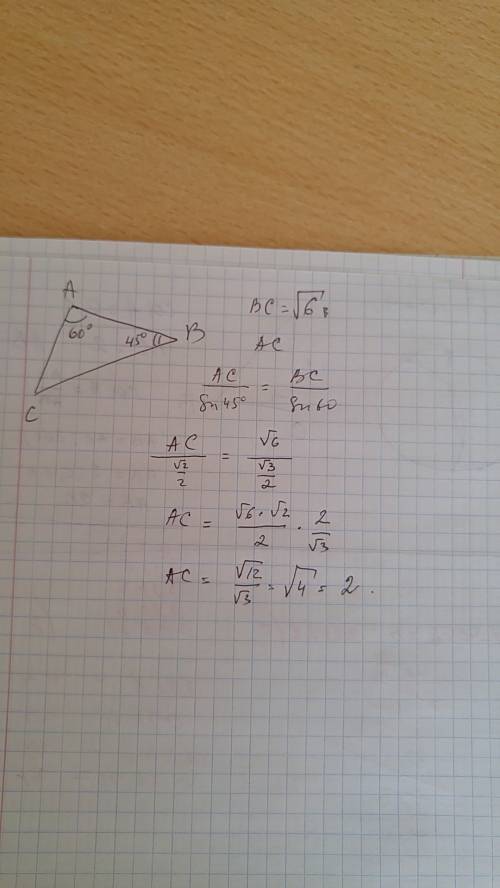 A
60°
45°
B
C
BC = √6
AC
AC / Sin 45° = BC / Sin 60
AC / (√2/2) = √6 / (√3/2)
AC = (√6 · √2) / 2 · 2 / √3
AC = √12 / √3 = √4 = 2.